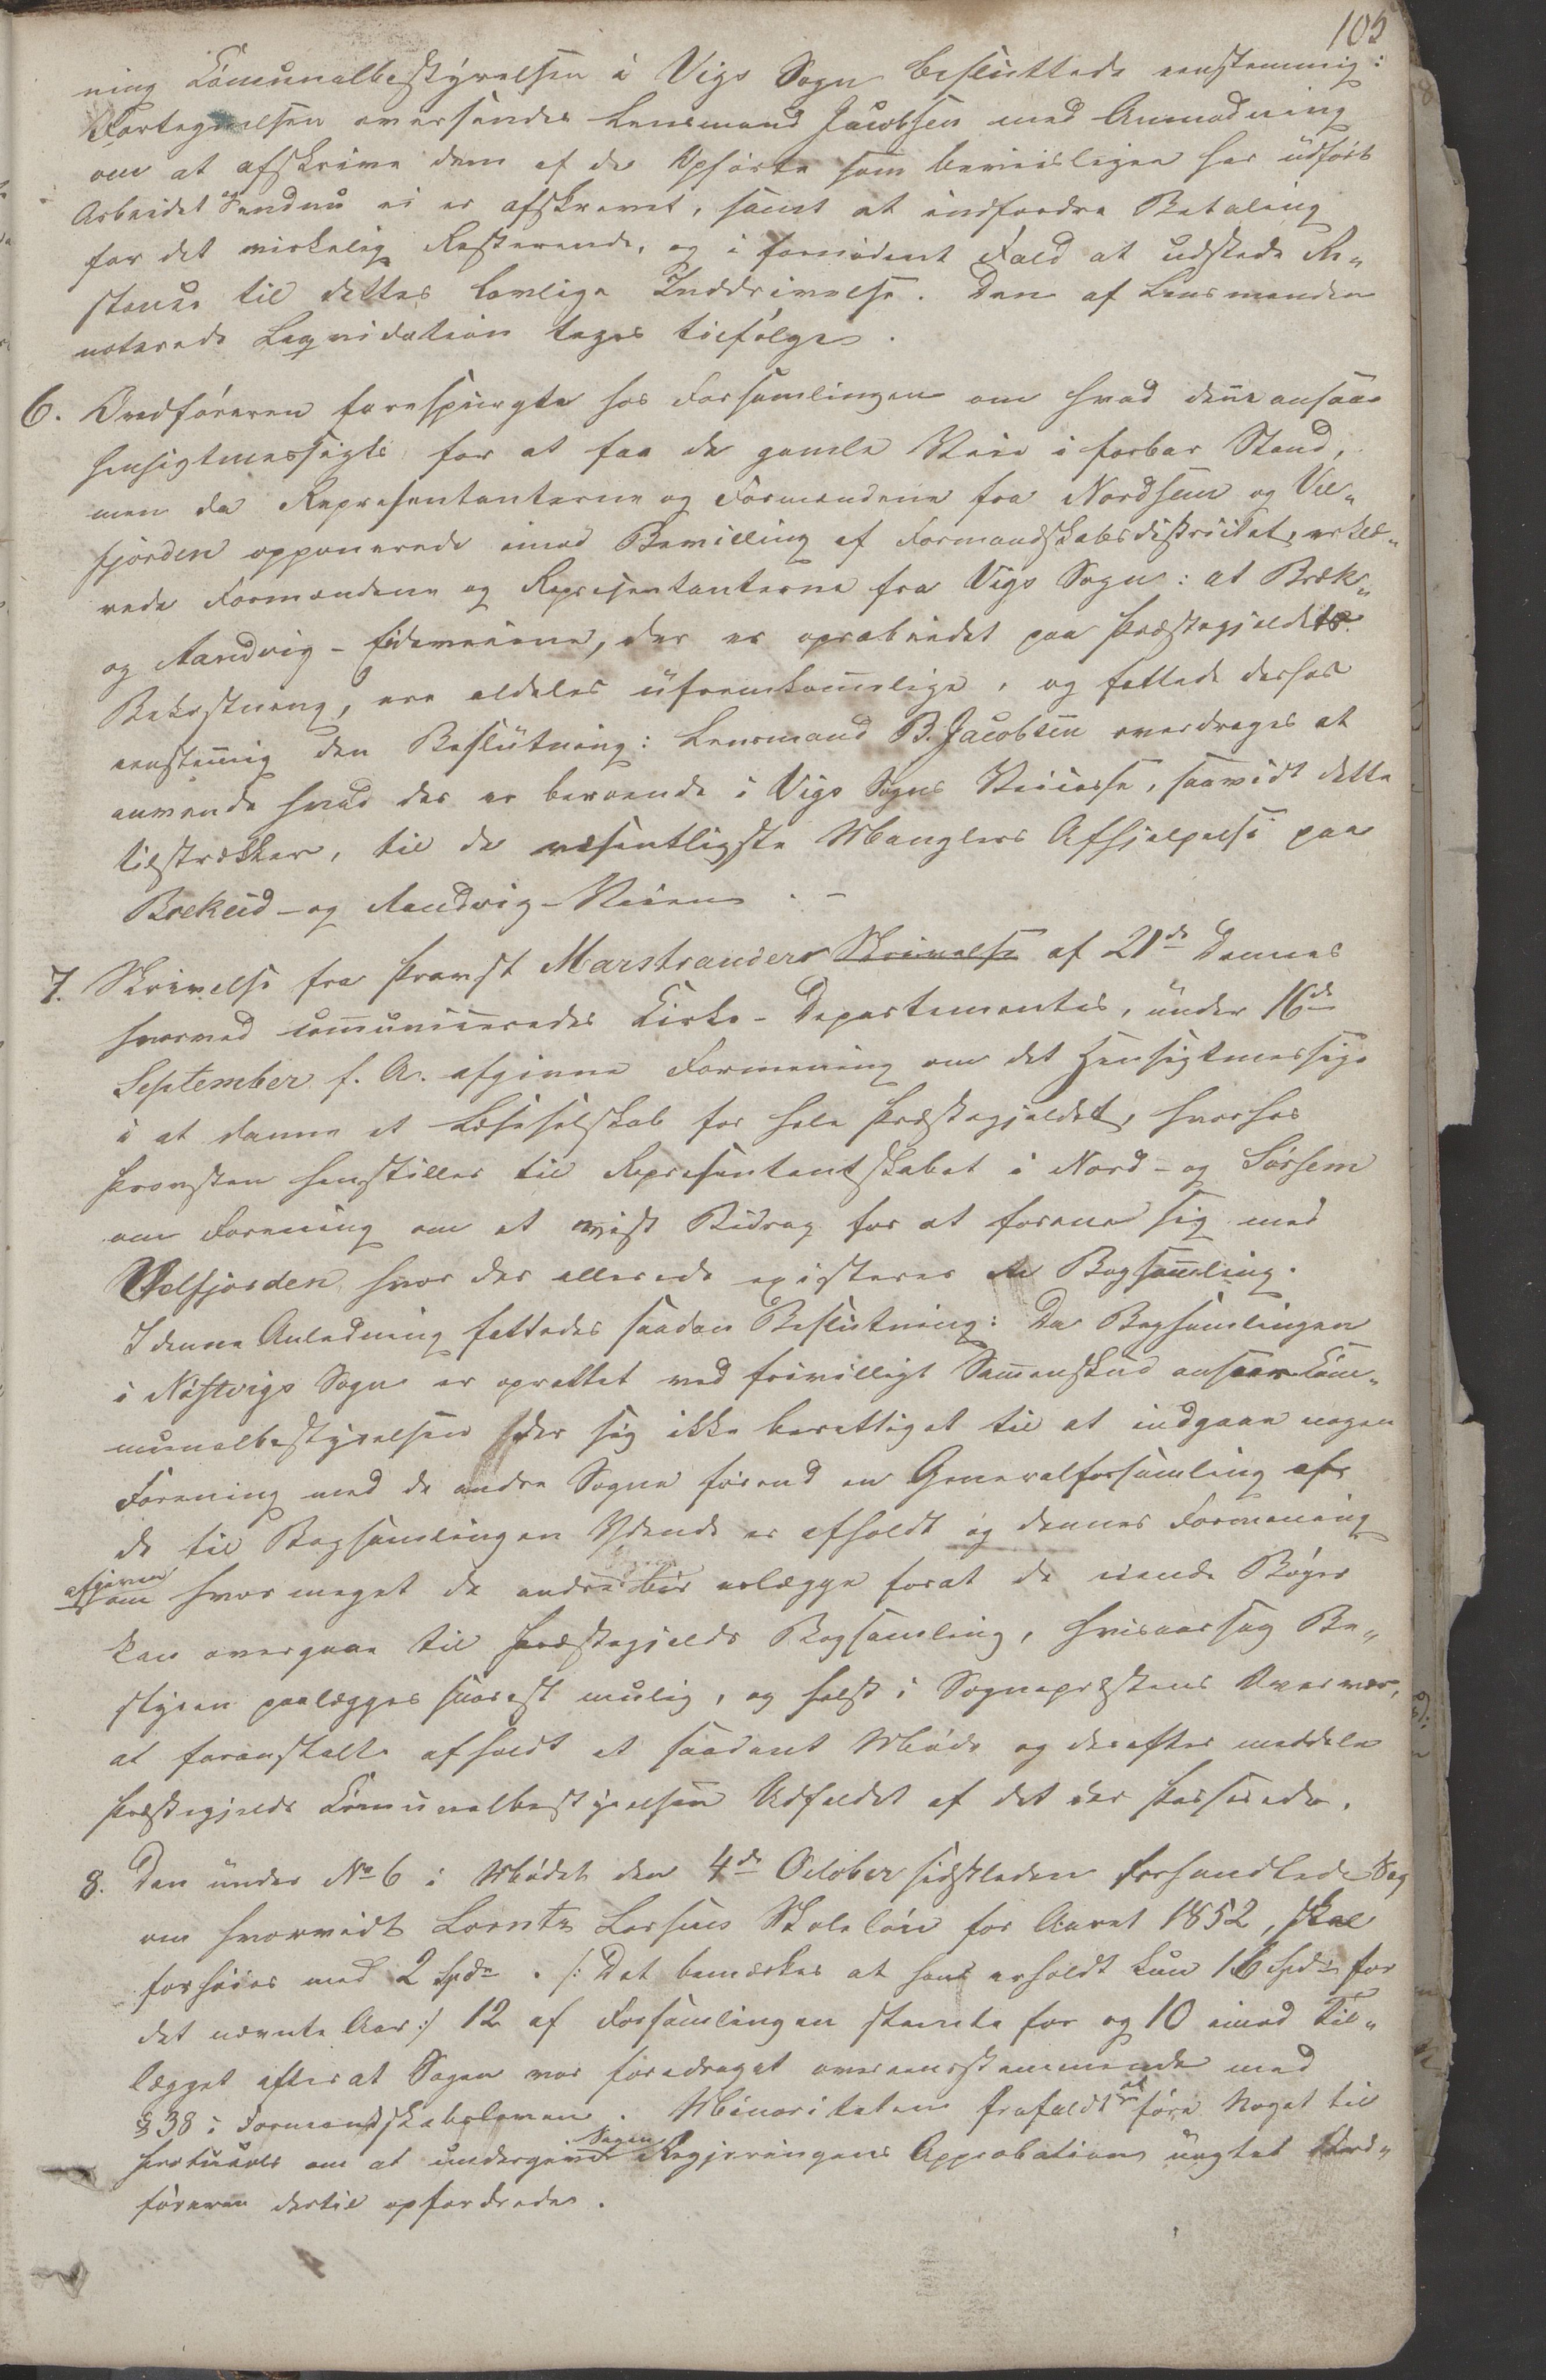 105
ning Comunalbestyrelsen i Vigs Sogn besluttede eenstemmig:
Fortegnelsen oversendes Lensmand Jacobsen med Anmodning
om at afskrive dem af de Opførte som beviisligen har udført
Arbeidet og endnu ei er afskrevet, samt at indfordre Betaling
for det virkelig Resterende, og i fornødent Fald at udstede Re„
stance til dettes lovlige Inddrivelse. Den af Lensmanden
noterede Liqvidation tages tilfølge.
6. Ordføreren forespurgte hos Forsamlingen om hvad denne ansaae
hensigtmessigts for at faa de gamle Veie i farbar Stand,
men da Repræsentanterne og Formændene fra Nordsem og Vel„
fjorden opponerede imod Bevilling af Formandskabsdistrictet, erklæ„
rede Formændene og Repræsentanterne fra Vigs Sogn: at Bræk„
og Aandvig-Eideveiene, der er oparbeidet paa Præstegjeldets
Bekostning, ere aldeles ufremkommelige, og fattede derhos
eenstemmig den Beslutning: Lensmand B. Jacobsen overdrages at
anvende hvad der er beroende i Vigs Sogns Veicasse, saavidt dette
tilstrækker, til de væsentligste Manglers Afhjelpelse paa
Brekeid- og Aandvig-Veien. -
7. Skrivelse fra Provst Marstrander Skrivelse af 21de Dennes
hvorved communiceredes Kirke-Departementets, under 16de
September f. A. afgivne Formening om det Hensigtmessige
i at danne et Læseselskab for hele Præstegjeldet, hvorhos
Provsten henstiller til Repræsentantskabet i Nord- og Sørsem
om Forening om et vist Bidrag for at forene sig med
Velfjorden hvor der allerede existerer en Bogsamling.
I denne Anledning fattedes saadan Beslutning: Da Bogsamlingen
i Nøstvigs Sogn er oprettet ved frivilligt Sammenskud ansaar Com„
munalbestyrelsen der sig ikke berettiget til at indgaae nogen
Forening med de andre Sogne førend en Generalforsamling af
de til Bogsamlingen Ydende er afholdt og dennes Formening
afgiven om hvor meget de andre bør erlægge forat de iiende Bøger
kan overgaae til Præstegjelds Bogsamling, hvisaarsag Be„
styren paalægges snarest mulig, og helst i Sognepræstens Overvær,
at foranstalte afholdt et saadant Møde og derefter meddele
Præstegjelds Comunalbestyrelsen Udfaldet af det der Passerede.
8. Den under No 6 i Mødet den 4de October sidstleden forhandlede Sag
om hvorvidt Lorntz Larsens Skoleløn for Aaret 1852, skal
forhøies med 2 Spd. /: Det bemærkes at han erholdt kun 16 Spd. for
det nævnte Aar :/ 12 af Forsamlingen stemte for og 10 imod Til„
lægget efterat Sagen var foredraget overeensstemmende med
§ 38 i Formandskabsloven. Minoriteten frafaldt at føre Noget til
Protocols om at undergive Sagen Regjeringens Approbation uagtet Ord„
føreren dertil opfordrede.